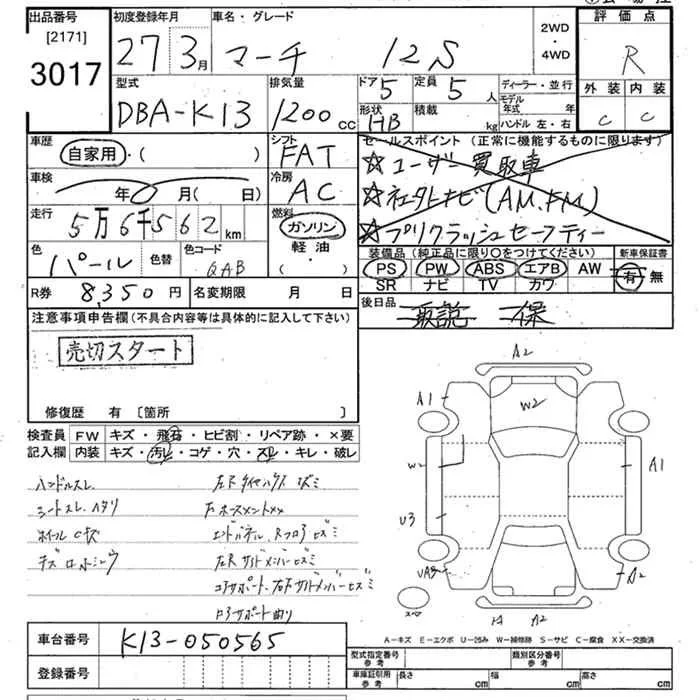 出品番号
[2171]
3017
初度登録年月
27 3月
車名・グレード
マーチ 12S
2WD
・
4WD
評価点
R
外装 内装
C C
型式
DBA-K13
排気量
1200 cc
ドア 5
定員 5 人
形状 HB
積載 kg
ディーラー・並行
モデル年式 年
ハンドル 左・右
車歴
自家用・( )
シフト
FAT
車検
年 月(日)
冷房
AC
走行
5万6千562km
燃料
ガソリン
軽油・
( )
色
パール
色替
色コード
QAB
セールスポイント(正常に機能するものに限ります)
☆ユーザー買取車
☆社外ナビ(AM.FM)
☆プリクラッシュセーフティー
装備品(純正品に限り○をつけてください)
PS PW ABS エアB AW
SR ナビ TV カワ
新車保証書
有 無
R券 8,350円
名変期限 月 日
後日品
取説 保
注意事項申告欄(不具合内容等は具体的に記入して下さい)
売切スタート
修復歴 有 [箇所 ]
検査員
記入欄
FW キズ・飛石・ヒビ割・リペア跡・×要
内装 キズ・汚レ・コゲ・穴・スレ・キレ・破レ
ハンドルスレ
シートスレ、ヘタリ
ホイールCキズ
コアサポート、
A2
A1
W2
W2
A1
U3
A2
スペア
A2
A-キズ E-エクボ U-凹み W-補修跡 S-サビ C-腐食 XX-交換済
車台番号
K13-050565
登録番号
型式指定番号
参考
類別区分番号
参考
車庫証引用
参考
長さ cm
幅 cm
高さ cm